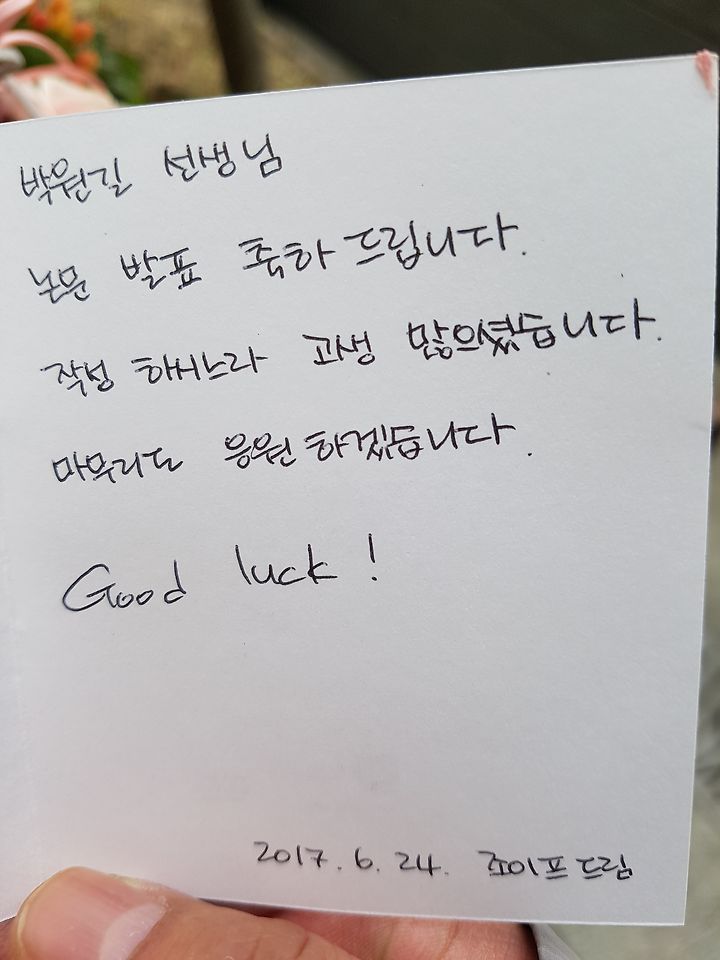 박원길 선생님
논문 발표 축하 드립니다.
작성 하시느라 고생 많으셨습니다.
마무리도 응원 하겠습니다.
Good luck!
2017. 6. 24. 조이프 드림